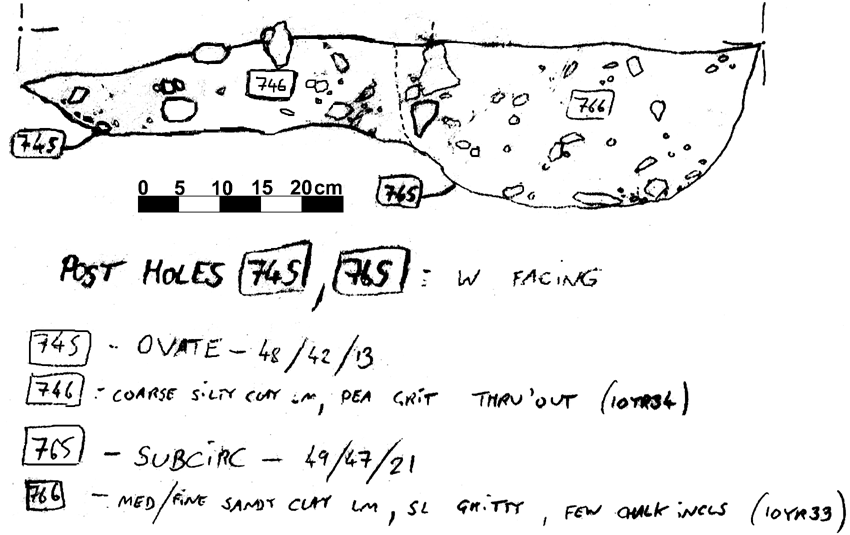 746
766
745
765
0 5 10 15 20cm
POST HOLES 745, 765 : W FACING
745 - OVATE - 48/42/13
746 : COARSE SILTY CLAY LM, PEA GRIT THRU'OUT (10YR34)
765 - SUBCIRC - 49/47/21
766 - MED/FINE SANDY CLAY LM, SL GRITTY, FEW CHALK INCLS (10YR33)